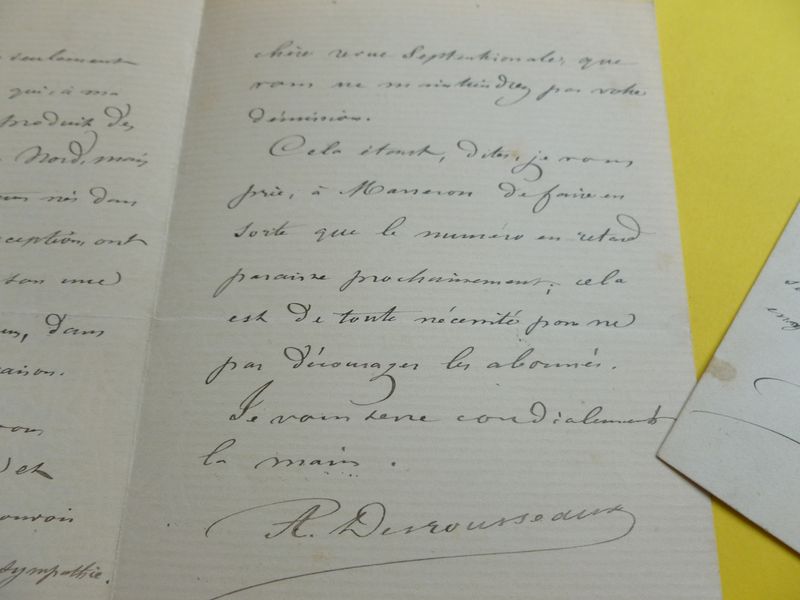 seulement
qui à ma
produit des
Nord, mais
nés dans
ception, ont
ton une
dans
aison.
vous
et
ouvoir
sympathie.
chère revue Septentrionale, que
vous ne maintiendrez par votre
démission.
Cela étant, dites, je vous
prie, à Masseron de faire en
sorte que le numéro en retard
paraisse prochainement; cela
est de toute nécessité pour ne
pas décourager les abonnés.
Je vous serre cordialement
la main.
A. Desrousseaux